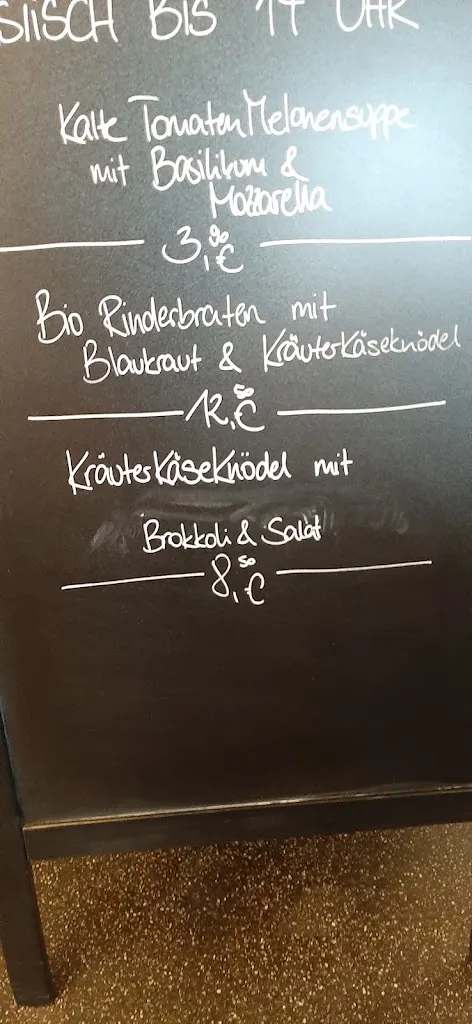 BIS 14 UHR
Kalte Tomaten Melonensuppe
mit Basilikum &
Mozzarella
3,90€
Bio Rinderbraten mit
Blaukraut & Kräuterkäseknödel
12,50€
Kräuterkäseknödel mit
Brokkoli & Salat
8,50€